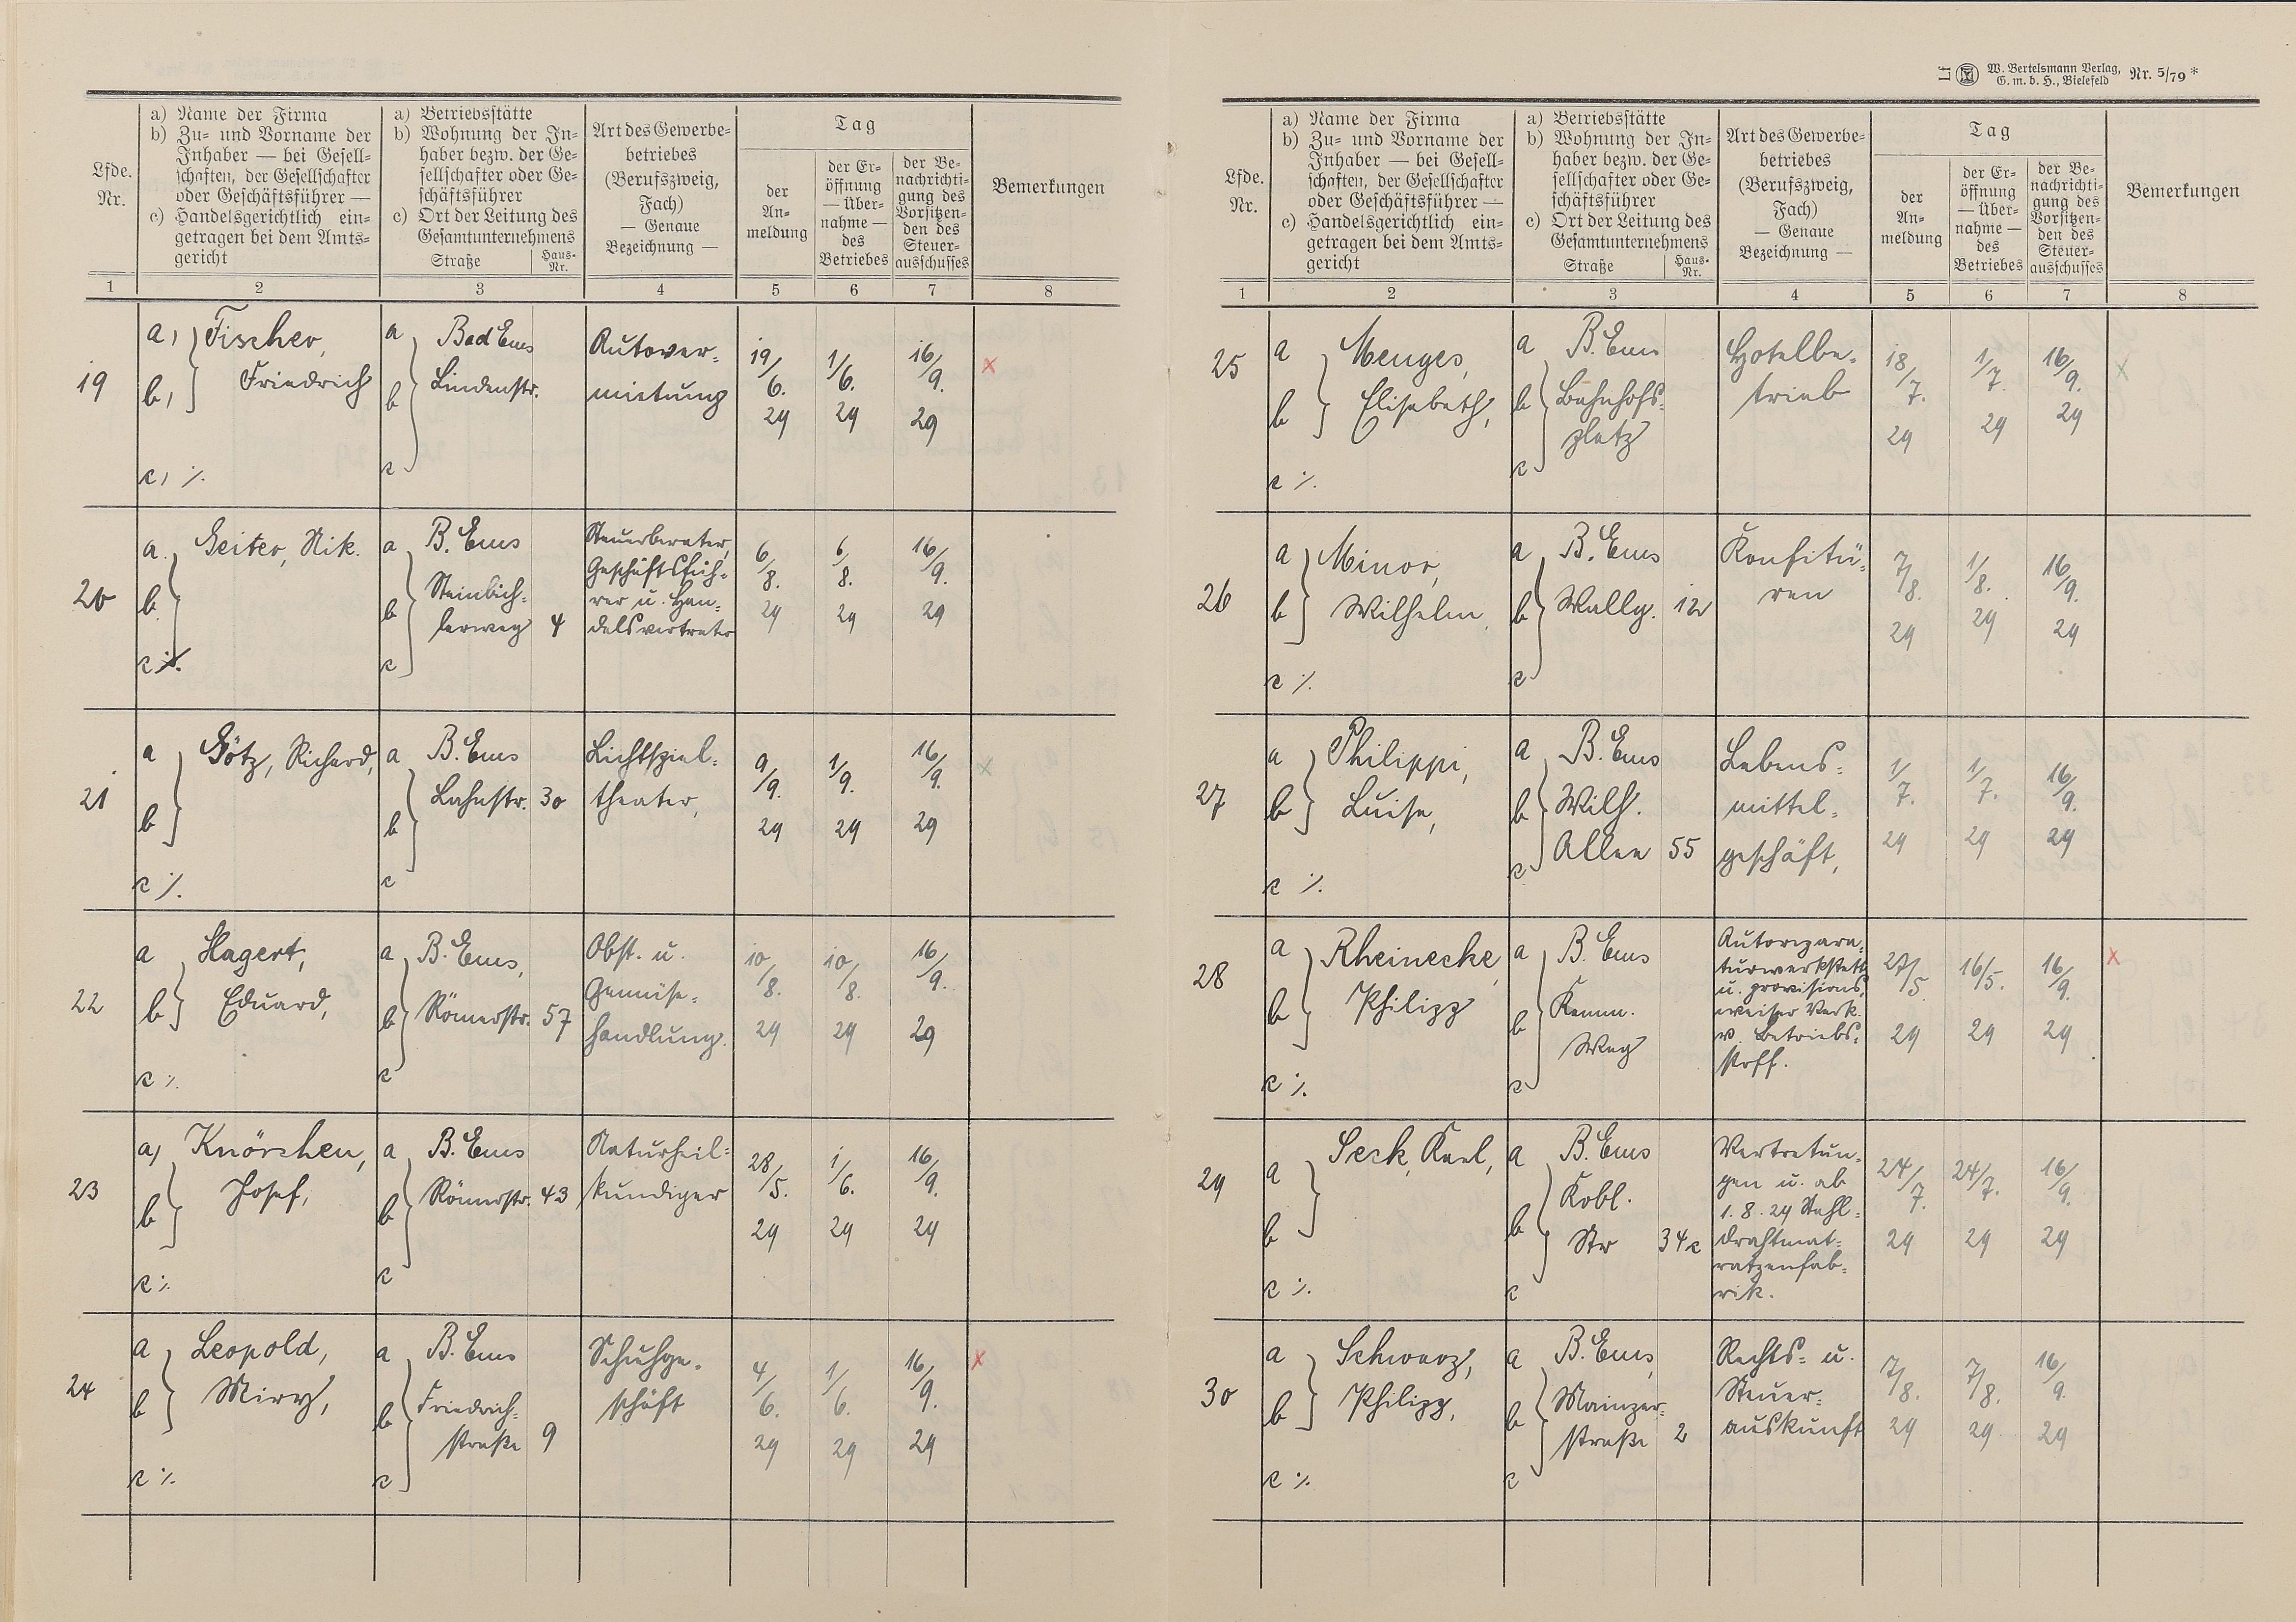 a) Name der Firma
b) Zu- und Vorname der
Inhaber — bei Gesell-
schaften, der Gesellschafter
oder Geschäftsführer —
c) Handelsgerichtlich ein-
getragen bei dem Amts-
gericht
a) Betriebsstätte
b) Wohnung der In-
haber bezw. der Ge-
sellschafter oder Ge-
schäftsführer
c) Ort der Leitung des
Gesamtunternehmens
Straße
Haus-
Nr.
Lfde.
Nr.
Art des Gewerbe-
betriebes
(Berufszweig,
Fach)
— Genaue
Bezeichnung —
Tag
der
An-
meldung
der Er-
öffnung
— Über-
nahme —
des
Betriebes
der Be-
nachrichti-
gung des
Vorsitzen-
den des
Steuer-
ausschusses
Bemerkungen
1 2 3 4 5 6 7 8
19
a) Fischer,
b) Friedrich
c) ٪
a Bad Ems
b Lindenstr.
c
Autover=
mietung
19/6. 29
1/6. 29
16/9. 29
x
20
a. Geiter, Nik.
b.
c ٪
a B. Ems
b Steinbich=
lerweg 4
c
Steuerberater,
Geschäftsfüh=
rer u. Han=
delsvertreter
6/8. 29
6/8. 29
16/9. 29
21
a Götz, Richard,
b
c ٪
a B. Ems
b Lahnstr. 30
c
Lichtspiel=
theater,
9/9. 29
1/9. 29
16/9. 29
x
22
a Hagert,
b Eduard,
c ٪
a B. Ems,
b Römerstr. 57
c
Obst. u.
Gemüse=
handlung.
10/8. 29
10/8. 29
16/9. 29
23
a) Knörchen,
b Josef,
c ٪
a B. Ems
b Römerstr. 43
c
Naturheil=
kundiger
28/5. 29
1/6. 29
16/9. 29
24
a Leopold,
b
c ٪
a B. Ems
b Friedrich=
straße 9
c
Schuhge=
schäft
4/6. 29
1/6. 29
16/9. 29
x
W. Bertelsmann Verlag,
G. m. b. H., Bielefeld
Nr. 5/79*
a) Name der Firma
b) Zu- und Vorname der
Inhaber — bei Gesell-
schaften, der Gesellschafter
oder Geschäftsführer —
c) Handelsgerichtlich ein-
getragen bei dem Amts-
gericht
a) Betriebsstätte
b) Wohnung der In-
haber bezw. der Ge-
sellschafter oder Ge-
schäftsführer
c) Ort der Leitung des
Gesamtunternehmens
Straße
Haus-
Nr.
Lfde.
Nr.
Art des Gewerbe-
betriebes
(Berufszweig,
Fach)
— Genaue
Bezeichnung —
Tag
der
An-
meldung
der Er-
öffnung
— Über-
nahme —
des
Betriebes
der Be-
nachrichti-
gung des
Vorsitzen-
den des
Steuer-
ausschusses
Bemerkungen
1 2 3 4 5 6 7 8
25
a Menges,
b Elisabeth,
c ٪
a B. Ems
b Bahnhofs=
platz
c
Hotelbe=
trieb
18/7. 29
1/7. 29
16/9. 29
x
26
a Minor,
b Wilhelm,
c ٪
a B. Ems
b Wallg. 12
c
Konfitü=
ren
7/8. 29
1/8. 29
16/9. 29
27
a Philippi,
b Luise,
c ٪
a B. Ems
b Wilh.
c Allee 55
Lebens=
mittel=
geschäft,
1/7. 29
1/7. 29
16/9. 29
28
a Rheinecke,
b Philipp
c ٪
a B. Ems
b Kemm.
Weg
c
Autorepara=
turwerkstatt
u. provisions=
weiser Verk.
v. Betriebs=
stoff.
27/5. 29
16/5. 29
16/9. 29
x
29
a Seck, Karl,
b
c ٪
a B. Ems
Kobl.
b Str 34c
c
Vertretun=
gen u. ab
1. 8. 29 Stahl=
drahtmat=
ratzenfab=
rik.
24/7. 29
24/7. 29
16/9. 29
30
a Schwarz,
b Philipp,
c ٪
a B. Ems,
b Mainzer=
straße 2
c
Rechts= u.
Steuer=
auskunft
7/8. 29
7/8. 29
16/9. 29